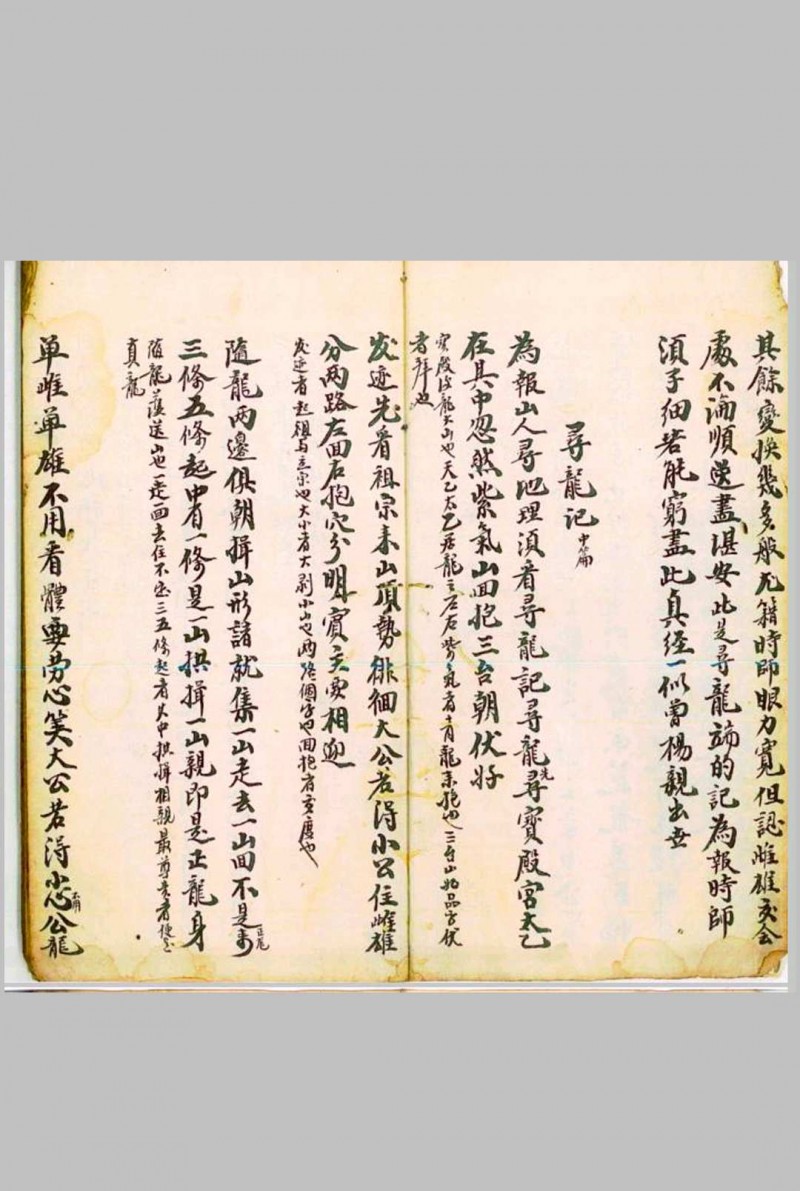 其餘變換幾多般尤籍時師眼力寬但認雌雄交会
處不論順逆盡湛安此是尋龍端的記為報時師
須子細若能窮盡此真经一似曾楊親出世
尋龍记中篇
為報山人尋地理須看尋龍記尋龍先尋寶殿宮太乙
在其中忽然紫氣山面抱三台朝伏好
宝殿後龍大山也天乙太乙在龍之左右紫氣者青龍来抱也三台山如品字伏
者拜也
发迹先看祖宗来山頂勢徘徊大公若得小公住雌雄
分两路左回右抱穴分明賓主要相迎
发迹者起祖与主宗也大小者大剥小山也两路個字也回抱有交度也
隨龍两邊俱朝揖山形諸就集一山走去一山回不是正尾
三條五條起中有一條是一山拱揖一山親即是正龍身
随龍蔭送山也一走一回去住不定三五條起者其中拱揖相親最尊貴者便是
真龍
单雌单雄不用看體要劳心笑大公若得小公龍